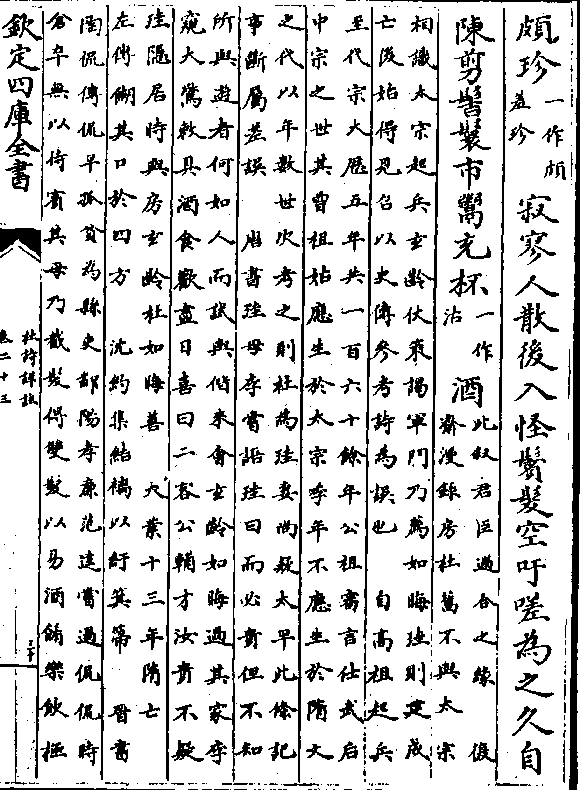 頗珍一作頗羞珍寂寥人散後入怪鬢髮空吁嗟為之久自
陳剪髻鬟市鬻充杯一作沽酒此叙君臣遇合之緣 復
齋漫錄房杜舊不與太宗
相識太宗起兵玄齡伏策謁軍門乃薦如晦珪則建成
亡後始得見召以史傳參考詩為誤也 自高祖起兵
至代宗大厯五年共一百六十餘年公祖審言仕武后
中宗之世其曾祖姑應生於太宗季年不應生於隋文
之代以年數世次考之則杜為珪妻尚疑太早此條記
事斷屬差誤 唐書珪母李嘗語珪曰而必貴但不知
所與遊者何如人而試與偕來會玄齡如晦過其家李
窺大驚敕具酒食歡盡日喜曰二客公輔才汝貴不疑
珪隱居時與房玄齡杜如晦善 大業十三年隋亡
左傳餬其口於四方 沈約集結褵以紆箕箒 晉書
陶侃傳侃早孤貧為縣吏鄱陽孝廉范逵嘗過侃侃時
倉卒無以待賓其母乃截髮得雙髲以易酒餚樂飲極
欽定四庫全書
杜詩詳註
卷二十三